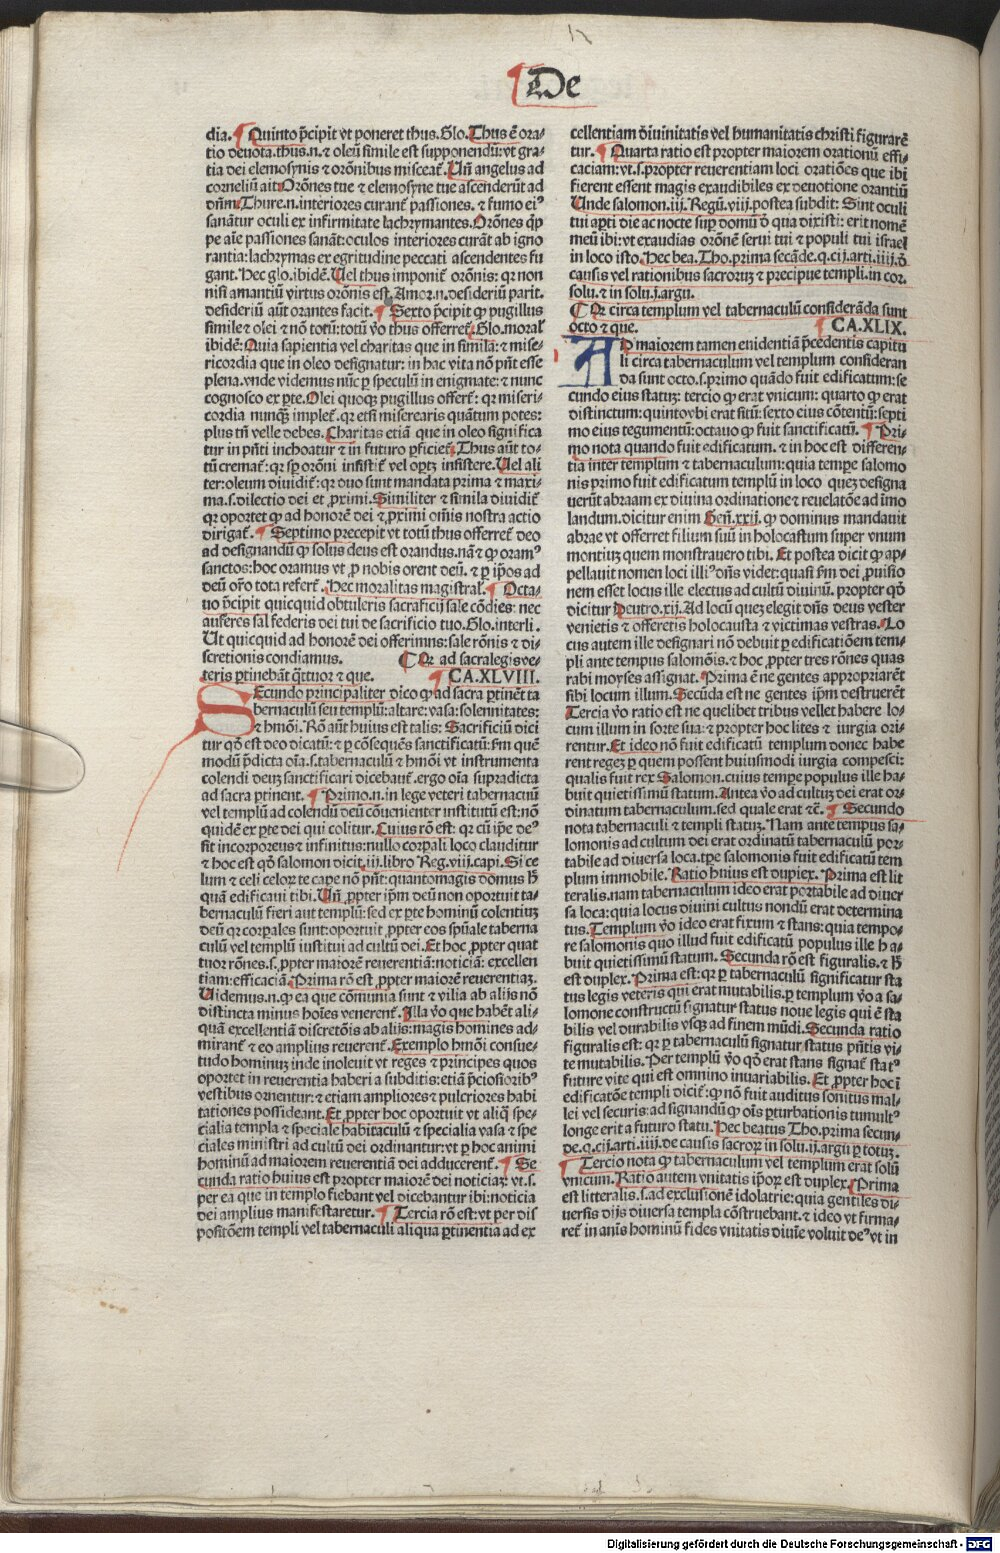 De
dia. ¶ Quinto p̃cipit vt poneret thus. Glo. Thus ẽ ora⸗
tio deuota. thus .n. ⁊ oleũ simile est supponendũ: vt gra⸗
tia dei elemosynis ⁊ orõnibus misceat̃. Uñ angelus ad
corneliũ ait. Orõnes tue ⁊ elemosyne tue ascenderũt ad
dñm. Thure .n. interiores curant̃ passiones. ⁊ fumo eiꝰ
sanãtur oculi ex infirmitate lachrymantes. Orõnes q̃ꝑ
pe aĩe passiones sanãt: oculos interiores curãt ab igno
rantia: lachrymas ex egritudine peccati ascendentes fu
gant. Hec glo. ibidẽ. Uel thus imponit̃ orõnis: qꝛ non
nisi amantiũ virtus orõnis est. Amor .n. desideriũ parit.
desideriũ aũt orantes facit. ¶ Sexto p̃cipit ꝙ pugillus
simile ⁊ olei ⁊ nõ totũ: totũ ṽo thus offerret̃. Glo. moral̃
ibidẽ: Quia sapientia vel charitas que in simila: ⁊ mise⸗
ricordia que in oleo designatur: in hac vita nõ pñt esse
plena. vnde videmus nũc ꝑ speculũ in enigmate: ⁊ nunc
cognosco ex ꝑte. Olei quoqꝫ pugillus offert̃: qꝛ miseri⸗
cordia nunqꝫ implet̃. qꝛ etsi miserearis quãtum potes:
plus tñ velle debes. Charitas etiã que in oleo significa
tur in pñti inchoatur ⁊ in futuro ꝑficiet̃. Thus aũt to⸗
tũ cremat̃: qꝛ sꝑ orõni insistit̃ vel oꝑtꝫ insistere. Uel ali
ter: oleum diuidit̃: qꝛ duo sunt mandata prima ⁊ maxi⸗
ma .s. dilectio dei et ꝓximi. Similiter ⁊ simila diuidit̃
qꝛ oportet ꝙ ad honorẽ dei ⁊ ꝓximi oĩs nostra actio
dirigat̃. ¶ Septimo precepit vt totũ thus offerret̃ deo
ad designandũ ꝙ solus deus est orandus. nã ⁊ ꝙ oramꝰ
sanctos: hoc oramus vt ꝓ nobis orent deũ. ⁊ ꝑ ip̃os ad
deũ or̃o tota refert̃. Hec moralitas magistral̃. ¶ Octa⸗
uo p̃cipit quicquid obtuleris sacraficij sale cõdies: nec
auferes sal federis dei tui de sacrificio tuo. Glo. interli.
Ut quicquid ad honorẽ dei offerimus: sale rõnis ⁊ di⸗
scretionis condiamus. ¶ Qꝛ ad sacra legis ve⸗
teris ꝑtinebãt q̃ttuor ⁊ que. ¶ CA. XLVIII.
SEcundo principaliter dico ꝙ ad sacra ꝑtinẽt ta
bernaculũ seu templũ: altare: vasa: solennitates:
⁊ hmõi. Rõ aũt huius est talis: Sacrificiũ dici
tur qõ est deo dicatũ: ⁊ ꝑ cõsequẽs sanctificatũ: s̃m quẽ
modũ p̃dicta oĩa .s. tabernaculũ ⁊ hmõi vt instrumenta
colendi deuꝫ sanctificari dicebant̃. ergo oĩa supradicta
ad sacra ꝑtinent. ¶ Primo .n. in lege veteri tabernaculũ
vel templũ ad colendũ deũ cõuenienter institutũ est: nõ
quidẽ ex ꝑte dei qui colitur. Cuius rõ est: qꝛ cũ ip̃e deꝰ
sit incorporeus ⁊ infinitus: nullo corꝑali loco clauditur
⁊ hoc est qõ salomon dicit. iij. libro Reg. viij. capi. Si ce
lum ⁊ celi celoꝝ te cape nõ pñt: quantomagis domus h̃
quã edificaui tibi. Uñ ꝓpter ip̃m deũ non oportuit ta⸗
bernaculũ fieri aut templũ: sed ex ꝑte hominũ colentiuꝫ
deũ qꝛ corꝑales sunt: oportuit ꝓpter eos sp̃uale taberna
culũ vel templũ institui ad cultũ dei. Et hoc ꝓpter quat
tuor rõnes .s. ꝓpter maiorẽ reuerentiã: noticiã: excellen
tiam: efficaciã. Prima rõ est ꝓpter maiorẽ reuerentiaꝫ.
Uidemus .n. ꝙ ea que cõmunia sunt ⁊ vilia ab alijs nõ
distincta minus hoĩes venerent̃. Illa ṽo que habẽt ali⸗
quã excellentiã discretõis ab alijs: magis homines ad⸗
mirant̃ ⁊ eo amplius reuerent̃. Exemplo hmõi consue⸗
tudo hominuꝫ inde inoleuit vt reges ⁊ principes quos
oportet in reuerentia haberi a subditis: etiã p̃ciosioribꝰ
vestibus ornentur: ⁊ etiam ampliores ⁊ pulcriores habi
tationes possideant. Et ꝓpter hoc oportuit vt aliq̃ spe⸗
cialia templa ⁊ speciale habitaculũ ⁊ specialia vasa ⁊ spe
ciales ministri ad cultũ dei ordinantur: vt ꝑ hoc animi
hominũ ad maiorem reuerentiã dei adducerent̃. ¶ Se
cunda ratio huius est propter maiorẽ dei noticiaꝫ: vt .s.
per ea que in templo fiebant vel dicebantur ibi: noticia
dei amplius manifestaretur. ¶ Tercia rõ est: vt per dis
positõem templi vel tabernaculi aliqua ꝑtinentia ad ex
cellentiam diuinitatis vel humanitatis christi figurarẽ
tur. ¶ Quarta ratio est propter maiorem orationũ effi⸗
caciam: vt .s. propter reuerentiam loci oratiões que ibi
fierent essent magis exaudibiles ex deuotione orantiũ
Unde salomon .iij. Regũ. viij. postea subdit: Sint oculi
tui aꝑti die ac nocte suꝑ domũ õ qua dixisti: erit nomẽ
meũ ibi: vt exaudias orõnẽ serui tui ⁊ populi tui israel
in loco isto. Hec bea. Tho. prima secãde. q. cij. arti. iiij. õ
causis vel rationibus sacroruꝫ ⁊ precipue templi. in cor.
solu. ⁊ in solu. j. argu.
¶ Qꝛ circa templum vel tabernaculũ considerãda sunt
octo ⁊ que. ¶ CA. XLIX.
AD maiorem tamen euidentiã p̃cedentis capitu
li circa tabernaculum vel templum consideran
da sunt octo .s. primo quãdo fuit edificatum: se
cundo eius statuꝫ: tercio ꝙ erat vnicum: quarto ꝙ erat
distinctum: quinto vbi erat sitũ: sexto eius cõtentũ: septi
mo eius tegumentũ: octauo ꝙ fuit sanctificatũ. ¶ Pri⸗
mo nota quando fuit edificatum. ⁊ in hoc est differen⸗
tia inter templum ⁊ tabernaculum: quia tempe salomo
nis primo fuit edificatum templũ in loco queꝫ designa
uerũt abraam ex diuina ordinatione ⁊ reuelatõe ad ĩmo
landum. dicitur enim Geñ. xxij. ꝙ dominus mandauit
abrae vt offerret filium suũ in holocaustum super vnum
montiuꝫ quem monstrauero tibi. Et postea dicit ꝙ ap⸗
pellauit nomen loci illiꝰ dñs videt: quasi s̃m dei ꝓuisio
nem esset locus ille electus ad cultũ diuinũ. propter qõ
dicitur Deutro. xij. Ad locũ queꝫ elegit dñs deus vester
venietis ⁊ offeretis holocausta ⁊ victimas vestras. Lo
cus autem ille designari nõ debuit ꝑ edificatiõem tem⸗
pli ante tempus salomõis. ⁊ hoc ꝓpter tres rõnes quas
rabi moyses assignat. Prima ẽ ne gentes appropriarẽt
sibi locum illum. Secũda est ne gentes ip̃m destruerẽt
Tercia ṽo ratio est: ne quelibet tribus vellet habere lo⸗
cum illum in sorte sua: ⁊ propter hoc lites ⁊ iurgia ori⸗
rentur. Et ideo nõ fuit edificatũ templum donec habe
rent regeꝫ ꝑ quem possent huiusmodi iurgia compesci:
qualis fuit rex Salomon. cuius tempe populus ille ha⸗
buit quietissimũ statum. Antea ṽo ad cultuꝫ dei erat or
dinatum tabernaculum. sed quale erat ⁊c̃. ¶ Secundo
nota tabernaculi ⁊ templi statuꝫ. Nam ante tempus sa⸗
lomonis ad cultum dei erat ordinatũ tabernaculũ por⸗
tabile ad diuersa loca. tꝑe salomonis fuit edificatũ tem
plum immobile. Ratio huius est duplex. Prima est lit
teralis. nam tabernaculum ideo erat portabile ad diuer
sa loca: quia locus diuini cultus nondũ erat determina
tus. Templum ṽo ideo erat fixum ⁊ stans: quia tempo⸗
re salomonis quo illud fuit edificatũ populus ille ha⸗
buit quietissimũ statum. Secunda rõ est figuralis. ⁊ h̃
est duplex. Prima est: qꝛ ꝑ tabernaculũ significatur sta
tus legis veteris qui erat mutabilis. ꝑ templum ṽo a sa⸗
lomone constructũ signatur status noue legis qui ẽ sta
bilis vel durabilis vsqꝫ ad finem mũdi. Secunda ratio
figuralis est: qꝛ ꝑ tabernaculũ signatur status pñtis vi⸗
te mutabilis. Per templũ ṽo qõ erat stans signat̃ statꝰ
future vite qui est omnino inuariabilis. Et ꝓpter hoc ĩ
edificatõe templi dicit̃: ꝙ nõ fuit auditus sonitus mal⸗
lei vel securis: ad signandũ ꝙ oĩs ꝑturbationis tumultꝰ
longe erit a futuro statu. Hec beatus Tho. prima secun⸗
de. q. cij. arti. iiij. de causis sacroꝝ in solu. ij. argu. ꝑ totuꝫ.
¶ Tercio nota ꝙ tabernaculum vel templum erat solũ
vnicum. Ratio autem vnitatis ip̃oꝝ est duplex. Prima
est litteralis .s. ad exclusionẽ idolatrie: quia gentiles di⸗
uersis dijs diuersa templa cõstruebant. ⁊ ideo vt firma⸗
ret̃ in anis hominũ fides vnitatis diuĩe voluit deꝰ vt in
Digitalisierung gefördert durch die Deutsche Forschungsgemeinschaft - DFG